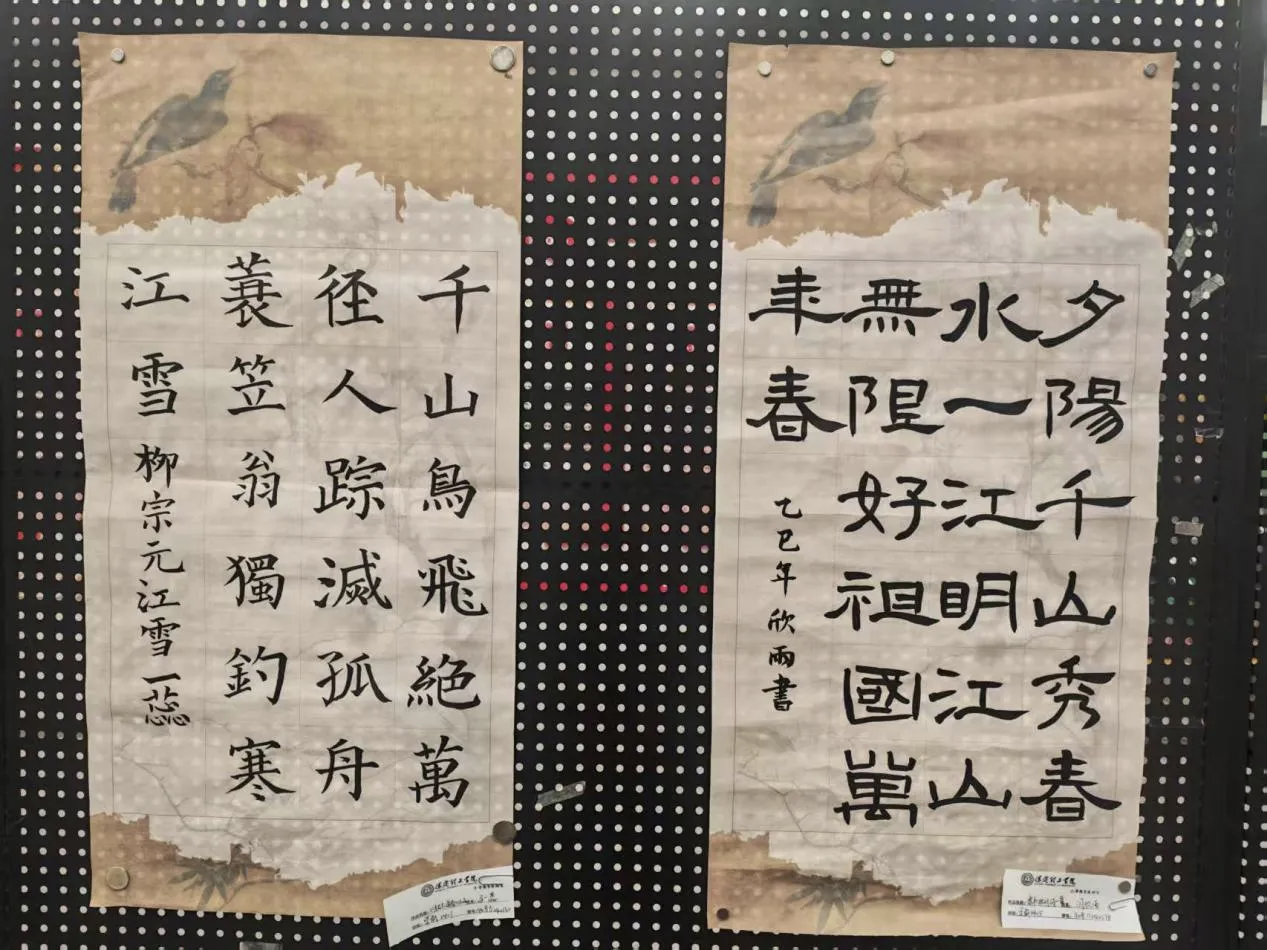 千山鳥飛絕萬
径人踪滅孤舟
蓑笠翁獨釣寒
江雪
柳宗元江雪一蕊
夕陽千山秀春
水一江明江山
無限好祖國萬
年春
乙巳年欣雨書